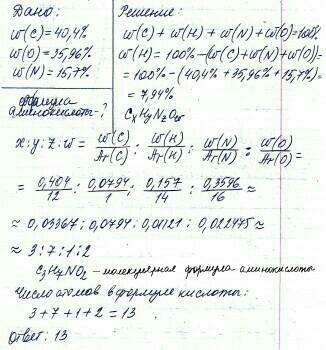 Дано:
w(C) = 40,4%
w(O) = 35,96%
w(N) = 15,7%
Формула
аминокислоты - ?
Решение:
w(C) + w(H) + w(N) + w(O) = 100%
w(H) = 100% - (w(C) + w(N) + w(O)) =
= 100% - (40,4% + 35,96% + 15,7%) =
= 7,94%
CxHyNzOw
x : y : z : w = w(C)/Ar(C) : w(H)/Ar(H) : w(N)/Ar(N) : w(O)/Ar(O) =
= 0,404/12 : 0,0794/1 : 0,157/14 : 0,3596/16 ≈
≈ 0,03367 : 0,0794 : 0,01121 : 0,022475 ≈
≈ 3 : 7 : 1 : 2
C3H7NO2 - молекулярная формула аминокислоты
Число атомов в формуле кислоты:
3 + 7 + 1 + 2 = 13
Ответ: 13